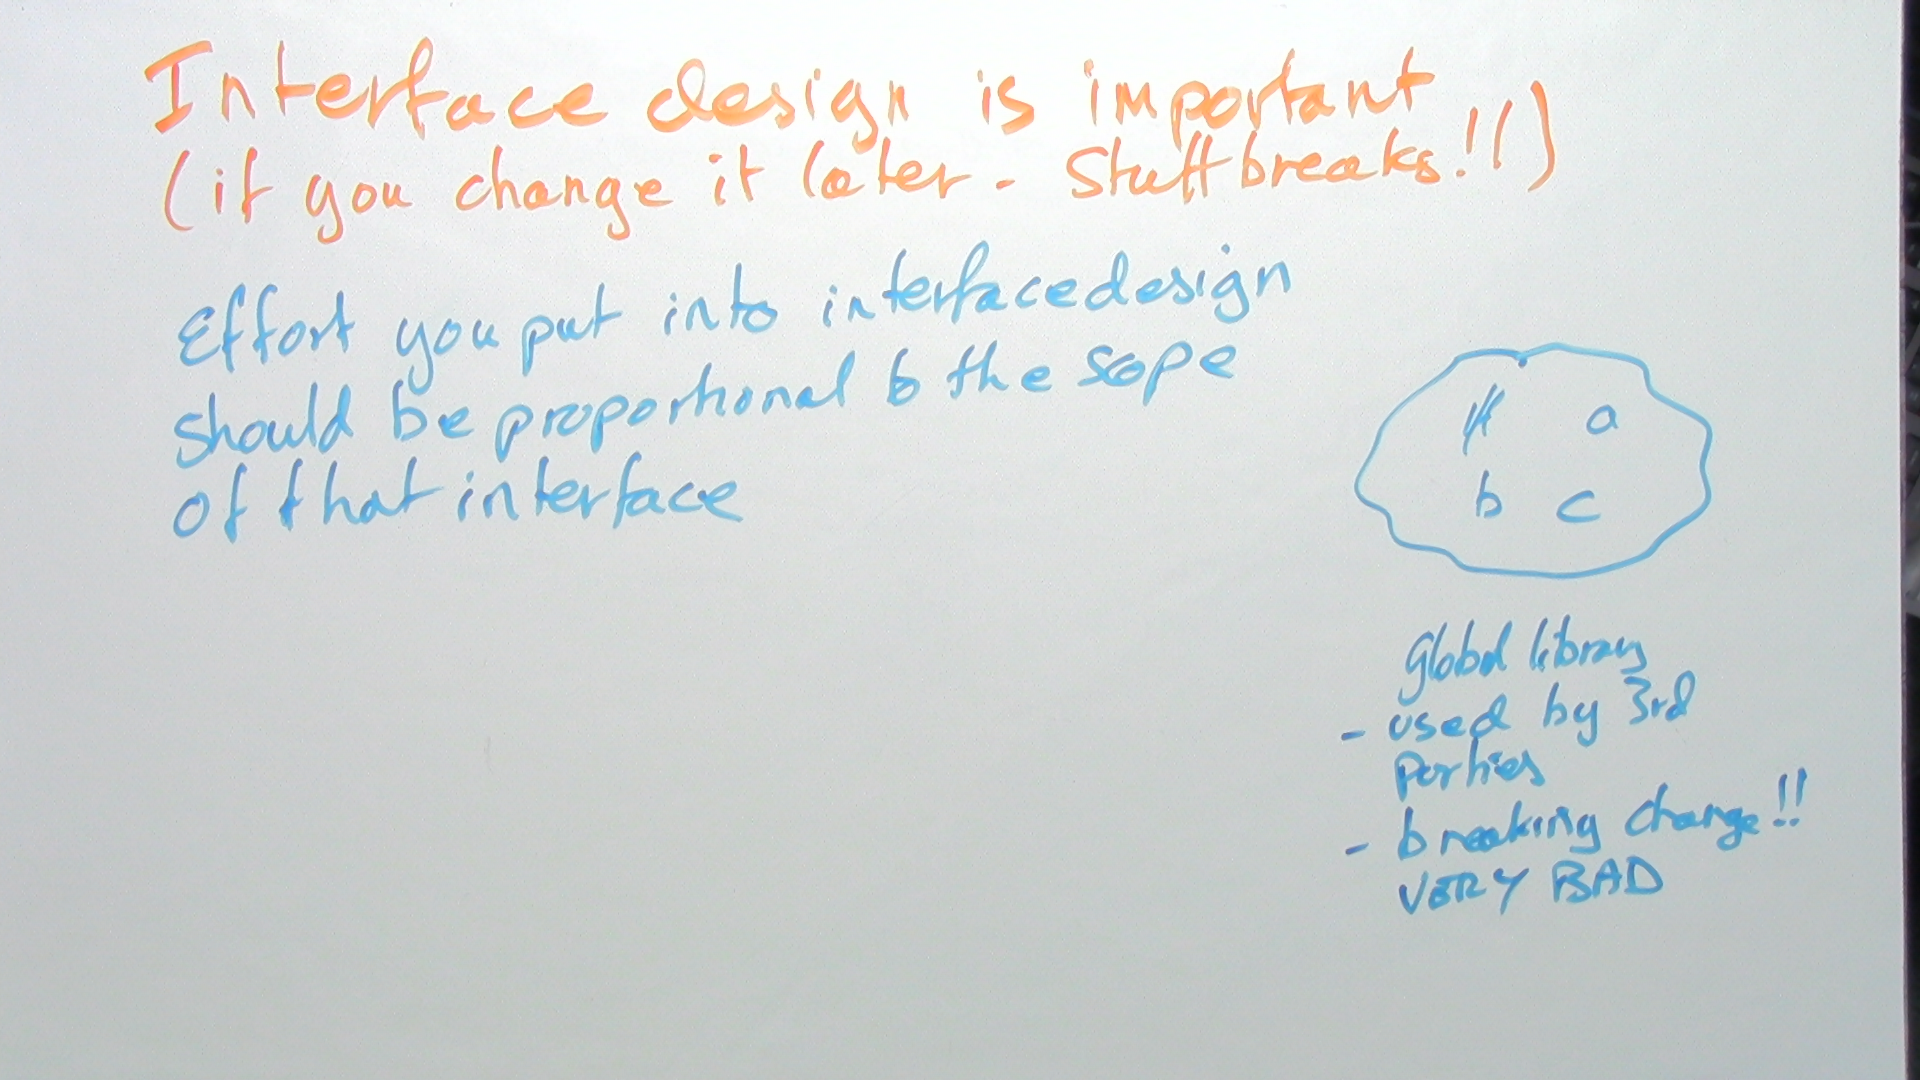 Interface design is important
(if you change it later - Stuff breaks!!)
Effort you put into interface design
should be proportional to the scope
of that interface
a
b c
Global library
- used by 3rd
parties
- breaking change!!
VERY BAD